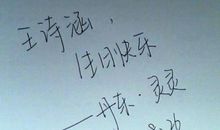 王诗涵，
生日快乐
——丹东·灵灵
8.26